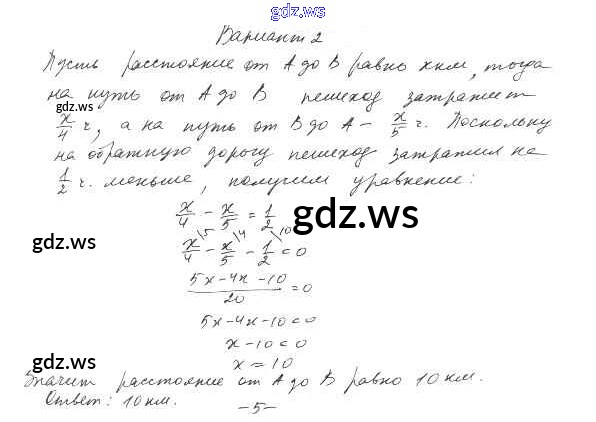 gdz.ws
Вариант 2
Пусть расстояние от А до В равно x км, тогда
на путь от А до В пешеход затратит
gdz.ws
x/4 ч, а на путь от В до А – x/5 ч. Поскольку
на обратную дорогу пешеход затратил на
1/2 ч. меньше, получим уравнение:
x/4 - x/5 = 1/2
gdz.ws
gdz.ws
x/4 \5 - x/5 \4 - 1/2 \10 = 0
(5x-4x-10)/20 = 0
5x-4x-10=0
x-10=0
gdz.ws
x=10
Значит расстояние от А до В равно 10 км.
Ответ: 10 км.
-5-